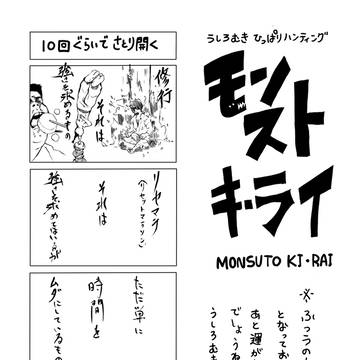 うしろむき ひっぱりハンティング
モンスト
キ・ライ
MONSUTO KI・RAI
※ふつうの
となってお
あと運が
でしょうね
うしろむ
10回ぐらいで さとり開く
修行
それは
強さを求めるもの
リセマラ
(リセットマラソン)
それは
強さを求めてはいるが
ただ単に
時間を
ムダにしているもの